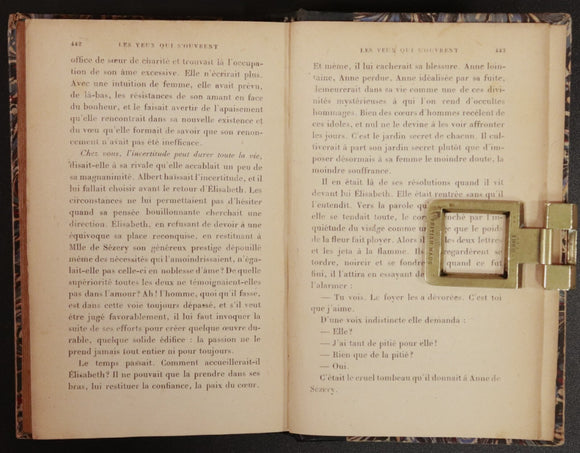 442 LES YEUX QUI S'OUVRENT
office de sœur de charité et trouvait là l'occupa-
tion de son âme excessive. Elle n'écrirait plus.
Avec une intuition de femme, elle avait prévu,
de là-bas, les résistances de son amant en face
du bonheur, et le faisait avertir de l'apaisement
qu'elle rencontrait dans sa nouvelle existence et
du vœu qu'elle formait de savoir que son renon-
cement n'avait pas été inefficace.
Chez vous, l'incertitude peut durer toute la vie,
disait-elle à sa rivale qu'elle accablait un peu de
sa magnanimité. Albert haïssait l'incertitude, et il
lui fallait choisir avant le retour d'Elisabeth. Les
circonstances ne lui permettaient pas d'hésiter
quand sa pensée bouillonnante cherchait une
direction. Elisabeth, en refusant de devoir à une
équivoque sa place reconquise, en restituant à
Mlle de Sézery son généreux prestige dépouillé
même des nécessités qui l'amoindrissaient, n'éga-
lait-elle pas celle-ci en noblesse d'âme? De quelle
supériorité toutes les deux ne témoignaient-elles
pas dans l'amour? Ah! l'homme, quoi qu'il fasse,
est dans cette voie toujours dépassé, et s'il veut
être jugé favorablement, il lui faut invoquer la
suite de ses efforts pour créer quelque œuvre du-
rable, quelque solide édifice : la passion ne le
prend jamais tout entier ni pour toujours.
Le temps passait. Comment accueillerait-il
Elisabeth? Il ne pouvait que la prendre dans ses
bras, lui restituer la confiance, la paix du cœur.
LES YEUX QUI S'OUVRENT 443
Et même, il lui cacherait sa blessure. Anne loin-
taine, Anne perdue, Anne idéalisée par sa fuite,
demeurerait dans sa vie comme une de ces divi-
nités mystérieuses à qui l'on rend d'occultes
hommages. Bien des cœurs d'hommes recèlent de
ces idoles, et nul ne le devine à les voir affronter
les jours. C'est le jardin secret de chacun. Il cul-
tiverait à part son jardin secret plutôt que d'im-
poser désormais à sa femme le moindre doute, la
moindre souffrance.
Il en était là de ses résolutions quand il vit
devant lui Elisabeth. Elle était rentrée sans qu'il
l'entendit. Vers la parole
elle se tendait toute, le ché par l'in-
quiétude du visage comme que le poids
de la fleur fait ployer. Alors il les deux lettres
et les jeta à la flamme. Ils regardèrent se
tordre, noircir et se fondre quand ce fut
fini, il l'attira en essayant de
l'alarmer :
— Tu vois. Le foyer les a dévorées. C'est toi
que j'aime.
D'une voix indistincte elle demanda :
— Elle?
— J'ai tant de pitié pour elle!
— Rien que de la pitié?
— Oui.
C'était le cruel tombeau qu'il donnait à Anne de
Sézery.